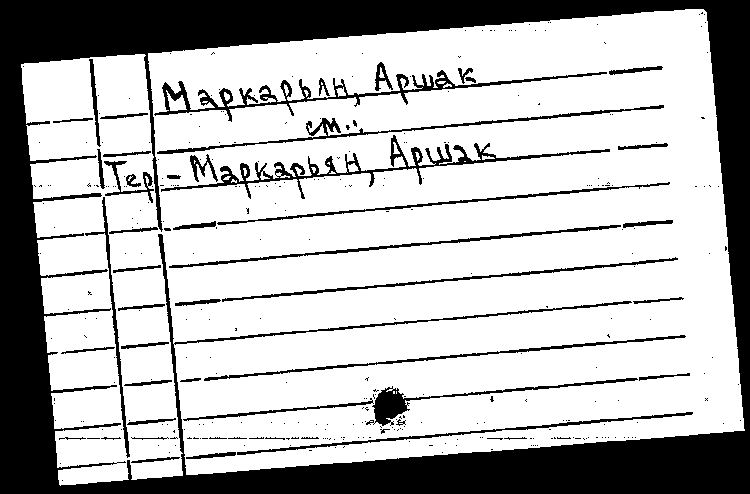 Маркарьян, Аршак
см.:
Тер-Маркарьян, Аршак